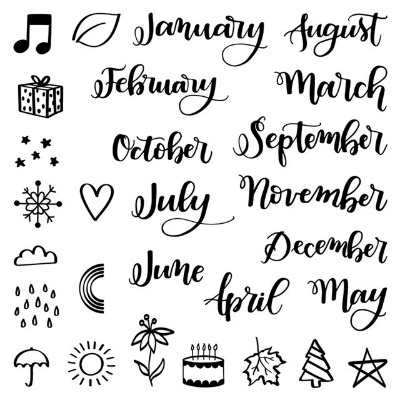 January August
February March
October September
July November
December
June
April May